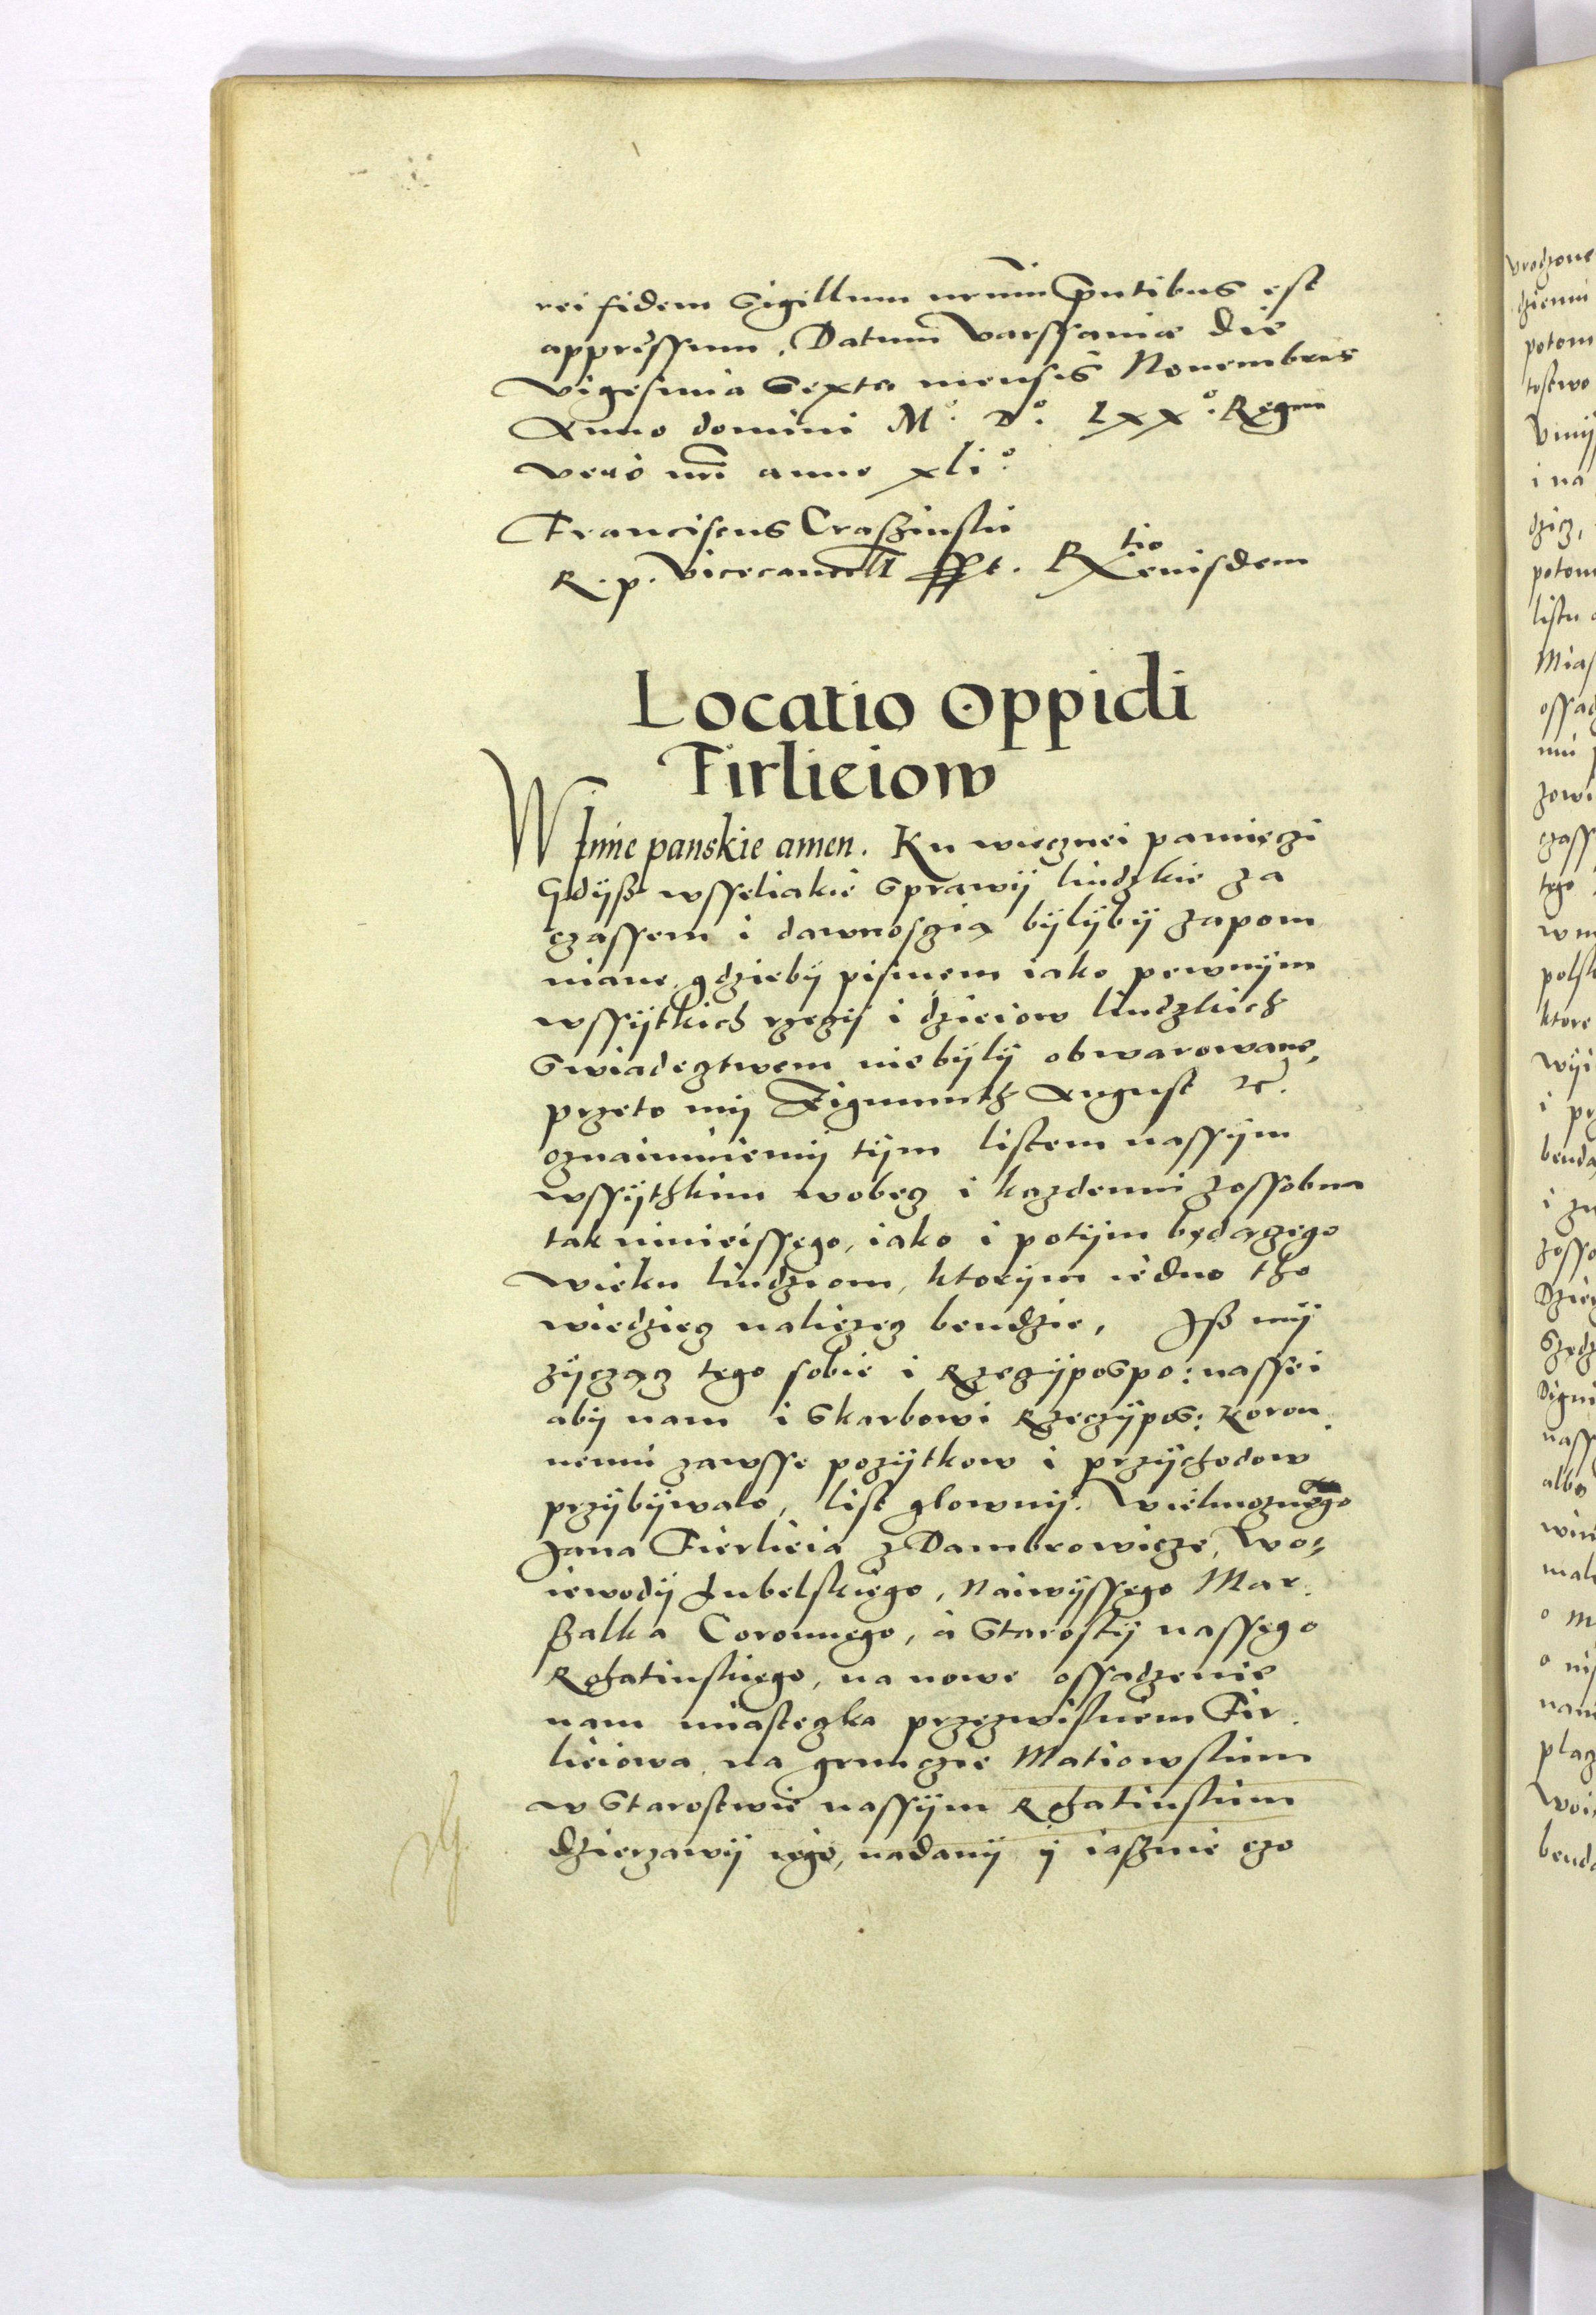 rei fidem Sigillum nr̄um p̄ntibus est
appressum. Datum Varssaviæ die
vigesima Sexta mensis Novembris
Anno domini M°. D°. Lxx°. Regni
vero nr̄i anno xli°.
Franciscus Crasszinskii
R. p. Vicecancell sspt. Rtio eiusdem
Locatio Oppidi
Firlieiow
W Imie panskie amen. Ku wiecznei pamięczi
Gdÿsz wsseliakie Sprawÿ liudzkie za
czassem i dawnosczią bÿlÿbÿ zapom
niane, gdziebÿ pismem iako pewnÿm
wssÿtkich rzeczÿ i dzieiow liudzkich
Swiadecztwem nie bÿlÿ obwarowane,
przeto mÿ Zigmunth August etc.
oznaimuiemÿ tÿm listem nassÿm
wssÿthkim wobecz i kazdemu zossobna
tak ninieissego, iako i potÿm będączego
wieku liudziom, ktorÿm iedno tho
wiedziecz naliezecz bendzie, Jsz mÿ
zÿcząc tego sobie i Rzeczÿpospo: nassei
abÿ nam i Skarbowi Rzeczÿpos: Koron
nemu zawsse pozÿtkow i przÿchodow
przÿbÿwalo, list glownÿ. Wielmoznego
Jana Fierlieia z Dambrowicze, Wo=
iewodÿ Lubelskiego, Naiwÿssego Mar
szalka Coronnego, a Starostÿ nassego
Rohatinskiego, na nowe ossadzenie
nam miasteczka przezwiskiem Fir
lieiowa na grunczie Matiowskim
w Starostwie nassÿm Rohatinskim
dzierzawÿ iego, nadanÿ ÿ iasznie czo